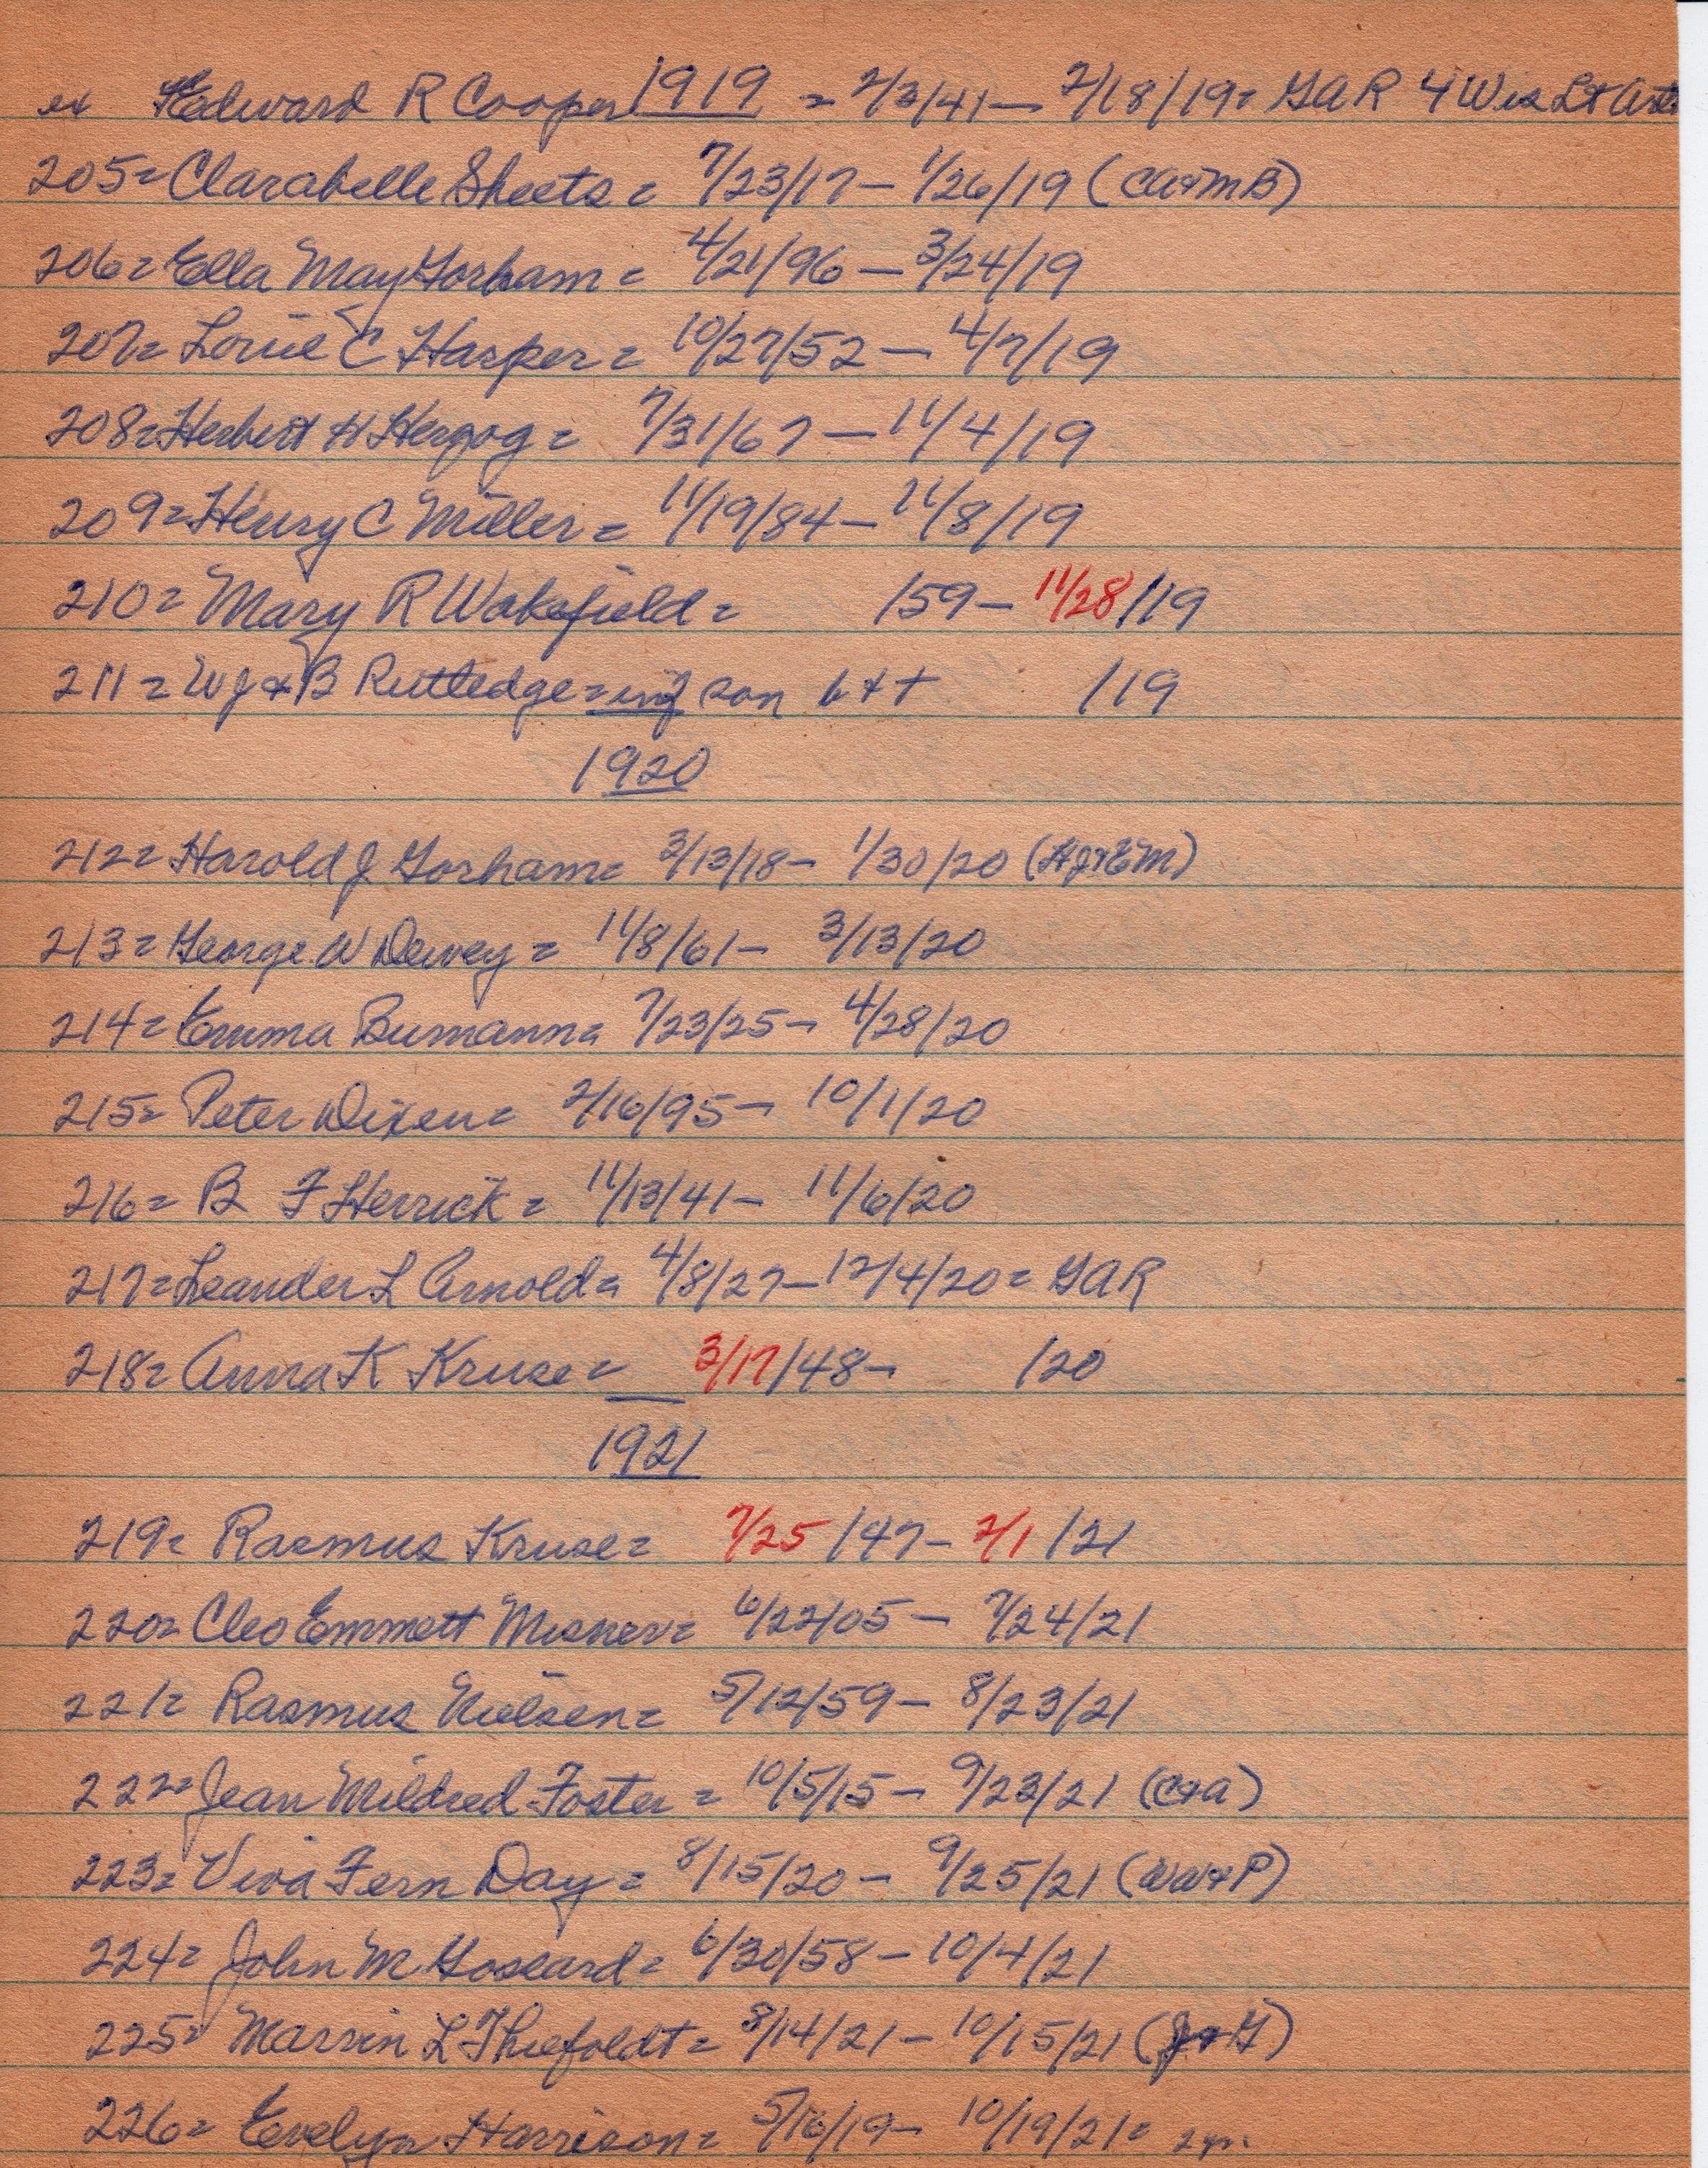 ex Edward R Cooper 1919 = 2/3/41 — 2/18/19 = GAR 4 Wis Lt Art.
205 = Clarabelle Sheets = 7/23/17 — 1/26/19 (CA+MB)
206 = Ella May Gorham = 4/21/96 — 3/24/19
207 = Louie C Harper = 10/27/52 — 4/7/19
208 = Herbert H Herzog = 7/31/67 — 11/4/19
209 = Henry C Miller = 11/19/84 — 11/8/19
210 = Mary R Wakefield = /59 — 11/28/19
211 = WJ + B Rutledge = inf son b + + /19
1920
212 = Harold J Gorham = 3/13/18 — 1/30/20 (HJ+EM)
213 = George W Dewey = 11/8/61 — 3/13/20
214 = Emma Bumann = 7/23/25 — 4/28/20
215 = Peter Dixen = 2/16/95 — 10/1/20
216 = B F Herrick = 11/13/41 — 11/6/20
217 = Leander L Arnold = 4/8/27 — 12/4/20 = GAR
218 = Anna K Kruse = 3/17/48 — /20
1921
219 = Rasmus Kruse = 7/25/47 — 2/1/21
220 = Cleo Emmett Misner = 6/22/05 — 7/24/21
221 = Rasmus Nielsen = 5/12/59 — 8/23/21
222 = Jean Mildred Foster = 10/5/15 — 9/23/21 (C+A)
223 = Viva Fern Day = 8/15/20 — 9/25/21 (WW+P)
224 = John M Gossard = 6/30/58 — 10/4/21
225 = Marvin L Thiefoldt = 8/14/21 — 10/15/21 (J+G)
226 = Evelyn Harrison = 5/16/19 — 10/19/21 = 2 yr.